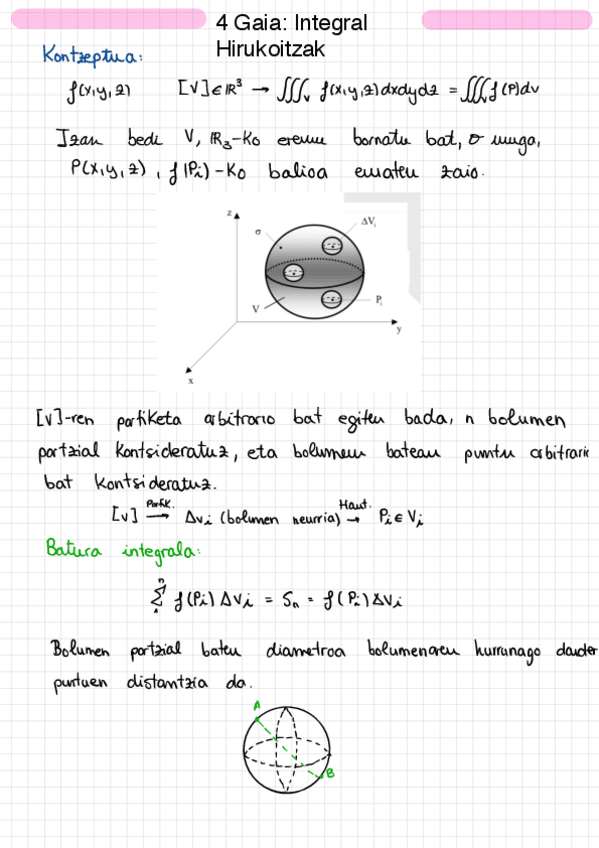 4 Gaia: Integral
Hirukoitzak
Kontzeptua:
f(x,y,z) [V]∈ℝ³ → ∭ᵥ f(x,y,z)dxdydz = ∭ᵥ f(P)dv
Izan bedi V, ℝ₃-ko eremu bornatu bat, σ muga,
P(x,y,z), f(Pi)-ko balioa ematen zaio.
z
σ
ΔVᵢ
V
Pᵢ
y
x
[V]-ren partiketa arbitrario bat egiten bada, n bolumen
partzial kontsideratuz, eta bolumen batean puntu arbitrario
bat kontsideratuz.
[V] Partik. → Δvᵢ (bolumen neurria) Haut. → Pᵢ∈Vᵢ
Batura integrala:
n Σ 1 f(Pi) ΔVi = Sn = f(Pi) ΔVi
Bolumen partzial baten diametroa bolumenaren hurrunago dauden
puntuen distantzia da.
A
B